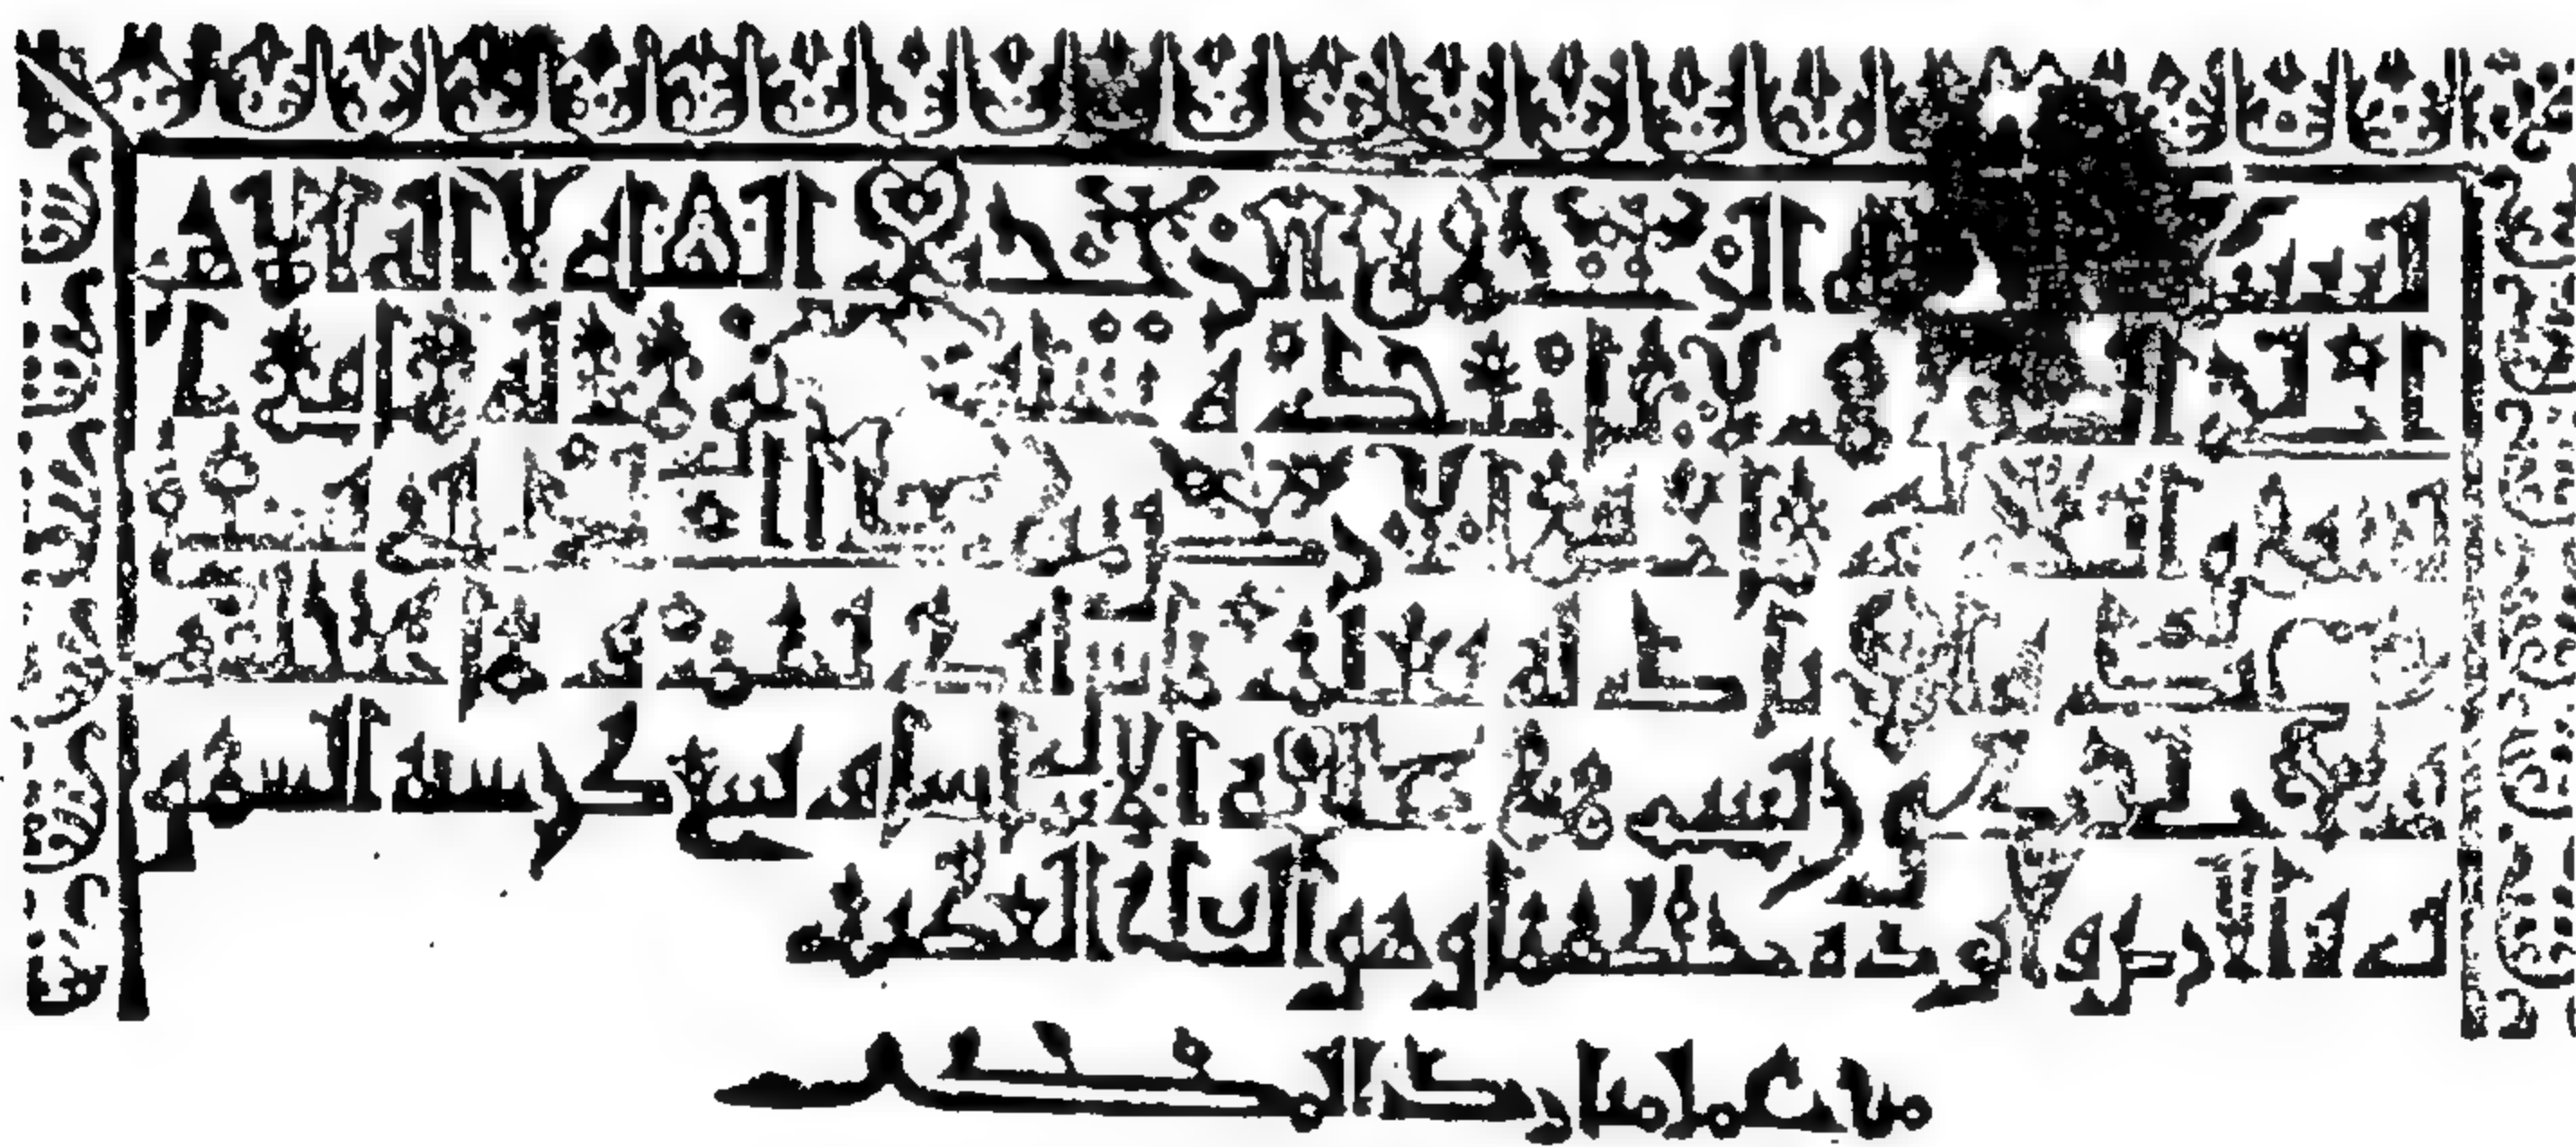 بسم الله الرحمن الرحيم الله لا اله الا هو
الحي القيوم لا تاخذه سنة ولا نوم له ما في ا
لسموات وما في الارض من ذا الذي يشفع
عنده الا باذنه يعلم ما بين ايديهم وما خلفهم
ولا يحيطون بشي من علمه الا بما شا وسع كرسيه السمو
ات والارض ولا يوده حفظهما وهو العلي العظيم
من عمل مبارك المكي